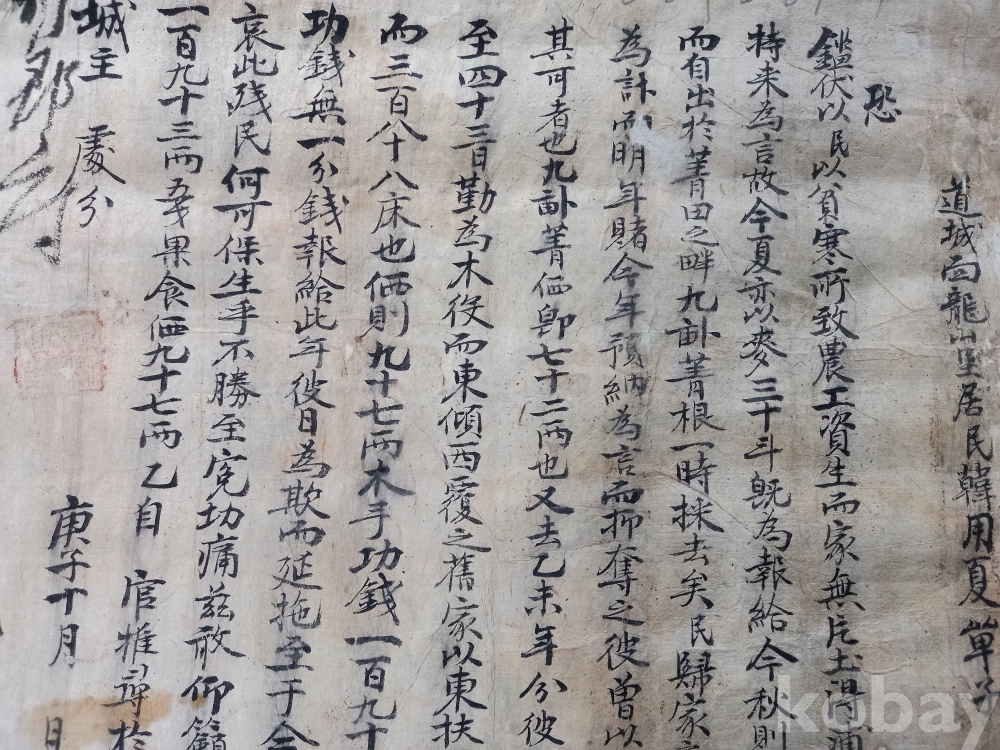 道城面龍山里居民韓用夏單子
恐
鑑伏以民以貧寒所致農工資生而家無片土得
特来為言故今夏亦以麥三十斗旣為報給今秋則
而自出於菁田之畔九卧菁根一時採去矣民歸家
為計而明年賭今年預納為言而抑奪之彼曾以
其可者也九卧菁価卽七十二両也又去乙未年分彼
至四十三日勤為木役而東傾西覆之舊家以東扶
而三百八十八床也価則九十七両木手功錢一百九十
功錢無一分錢報給此年彼日為欺而延拖至于今
哀此殘民何可保生乎不勝至寃切痛玆敢仰籲
一百九十三両果食価九十七両乙自 官推尋於
城主 處分
庚子十月 日
kobay